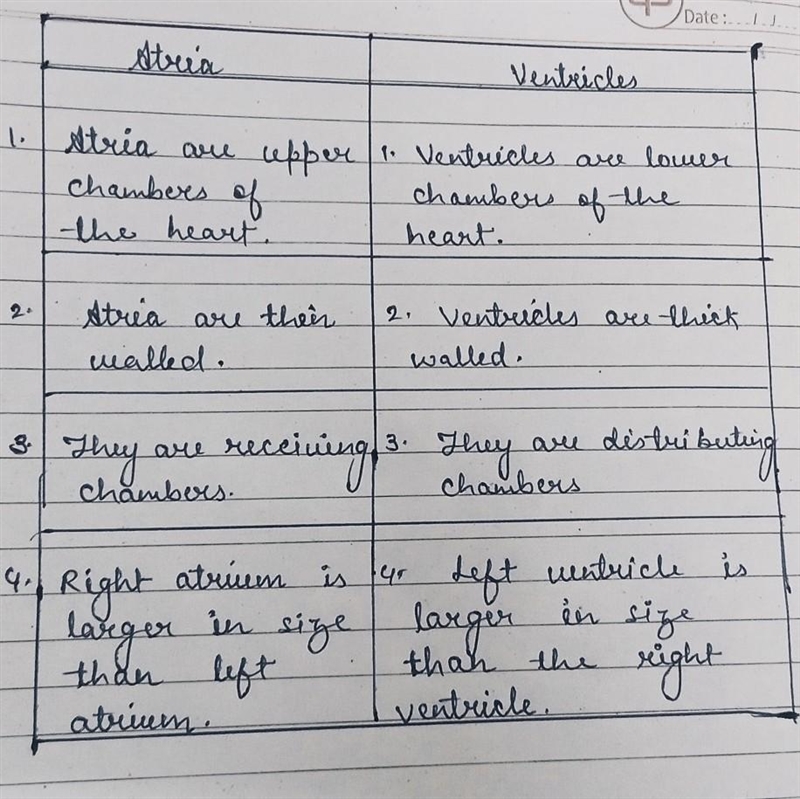 Date:...1.J...
Atria
Ventricles
1. Atria are upper
chambers of
the heart.
1. Ventricles are lower
chambers of the
heart.
2. Atria are thin
walled.
2. Ventricles are thick
walled.
3. They are receiving
chambers.
3. They are distributing
chambers
4. Right atrium is
larger in size
than left
atrium.
4. Left ventricle is
larger in size
than the right
ventricle.